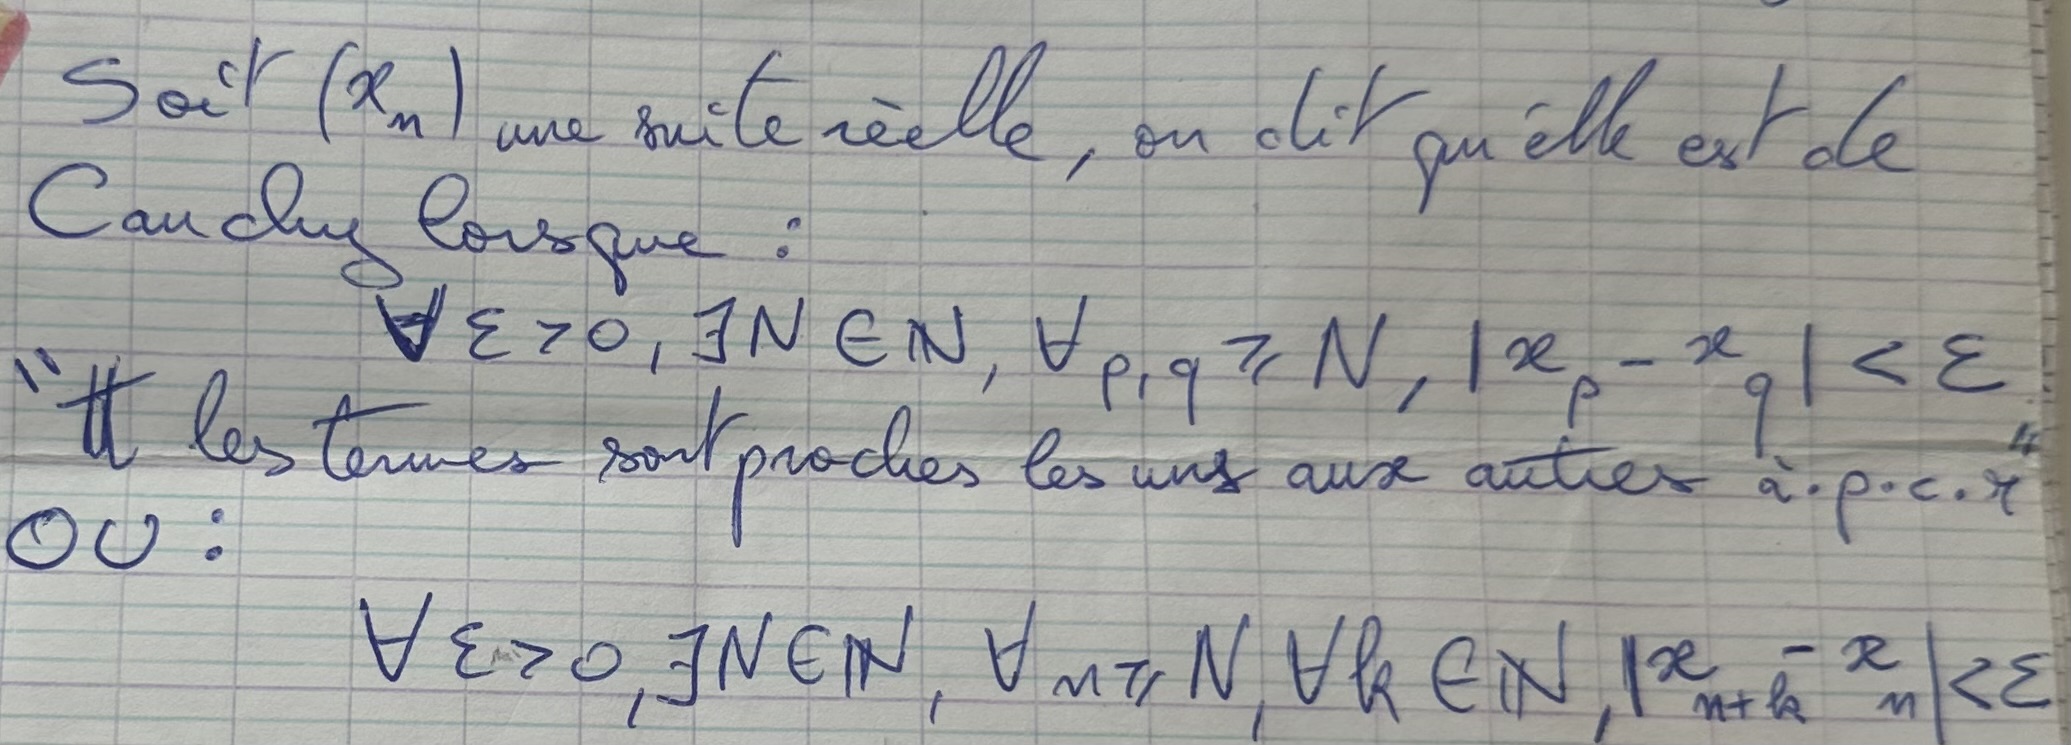 Soit (xₙ) une suite réelle, on dit qu'elle est de
Cauchy lorsque :
∀ ε > 0, ∃ N ∈ ℕ, ∀ p, q ⩾ N, |xₚ - x_q| < ε
"tt les termes sont proches les uns aux autres à.p.c.r"
OU :
∀ ε > 0, ∃ N ∈ ℕ, ∀ n ⩾ N, ∀ k ∈ ℕ, |xₙ₊ₖ - xₙ| < ε